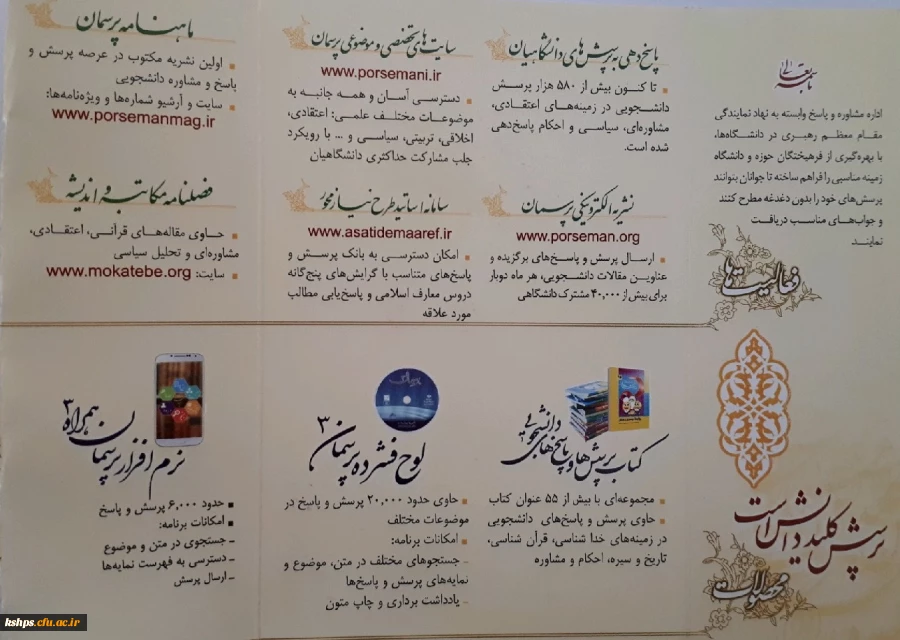 باسمه تعالی
اداره مشاوره و پاسخ وابسته به نهاد نمایندگی
مقام معظم رهبری در دانشگاه‌ها،
با بهره‌گیری از فرهیختگان حوزه و دانشگاه
زمینه مناسبی را فراهم ساخته تا جوانان بتوانند
پرسش‌های خود را بدون دغدغه مطرح کنند
و جواب‌های مناسب دریافت
نمایند.
فعالیت‌ها
پاسخ‌دهی به پرسش‌های دانشگاهیان
تا کنون بیش از ۵۸۰ هزار پرسش
دانشجویی در زمینه‌های اعتقادی،
مشاوره‌ای، سیاسی و احکام پاسخ‌دهی
شده است.
نشریه الکترونیکی پرسمان
www.porseman.org
ارسال پرسش و پاسخ‌های برگزیده و
عناوین مقالات دانشجویی، هر ماه دوبار
برای بیش از ۴۰,۰۰۰ مشترک دانشگاهی
سایت‌های تخصصی و موضوعی پرسمان
www.porsemani.ir
دسترسی آسان و همه جانبه به
موضوعات مختلف علمی: اعتقادی،
اخلاقی، تربیتی، سیاسی و ... با رویکرد
جلب مشارکت حداکثری دانشگاهیان
سامانه اساتید طرح نیاز محور
www.asatidemaaref.ir
امکان دسترسی به بانک پرسش و
پاسخ‌های متناسب با گرایش‌های پنج‌گانه
دروس معارف اسلامی و پاسخ‌یابی مطالب
مورد علاقه
ماهنامه پرسمان
اولین نشریه مکتوب در عرصه پرسش و
پاسخ و مشاوره دانشجویی
سایت و آرشیو شماره‌ها و ویژه‌نامه‌ها:
www.porsemanmag.ir
فصلنامه مکاتبه و اندیشه
حاوی مقاله‌های قرآنی، اعتقادی،
مشاوره‌ای و تحلیل سیاسی
سایت: www.mokatebe.org
پرسش کلید دانش است
محصولات
کتاب پرسش‌ها و پاسخ‌های دانشجویی
مجموعه‌ای با بیش از ۵۵ عنوان کتاب
حاوی پرسش و پاسخ‌های دانشجویی
در زمینه‌های خدا شناسی، قرآن شناسی،
تاریخ و سیره، احکام و مشاوره
لوح فشرده پرسمان ۳
حاوی حدود ۲۰,۰۰۰ پرسش و پاسخ در
موضوعات مختلف
امکانات برنامه:
- جستجوهای مختلف در متن، موضوع و
نمایه‌های پرسش و پاسخ‌ها
- یادداشت برداری و چاپ متون
نرم افزار پرسمان همراه ۳
حدود ۶,۰۰۰ پرسش و پاسخ
امکانات برنامه:
- جستجوی در متن و موضوع
- دسترسی به فهرست نمایه‌ها
- ارسال پرسش
kshps.cfu.ac.ir